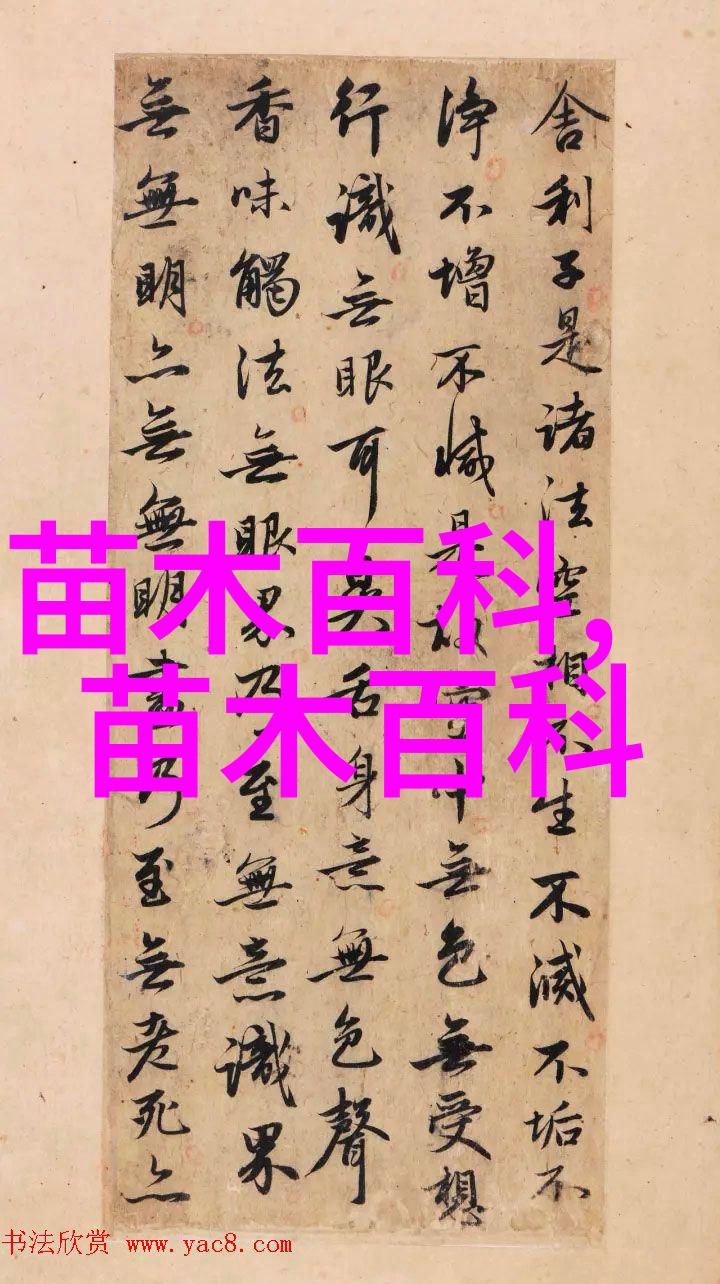 舍利子是諸法空相不生不滅不垢不
淨不增不減是故空中無色無受想
行識無眼耳鼻舌身意無色聲
香味觸法無眼界乃至無意識界
無無明亦無無明盡乃至無老死亦
苗木百科,
苗木百科
书法欣赏 www.yac8.com